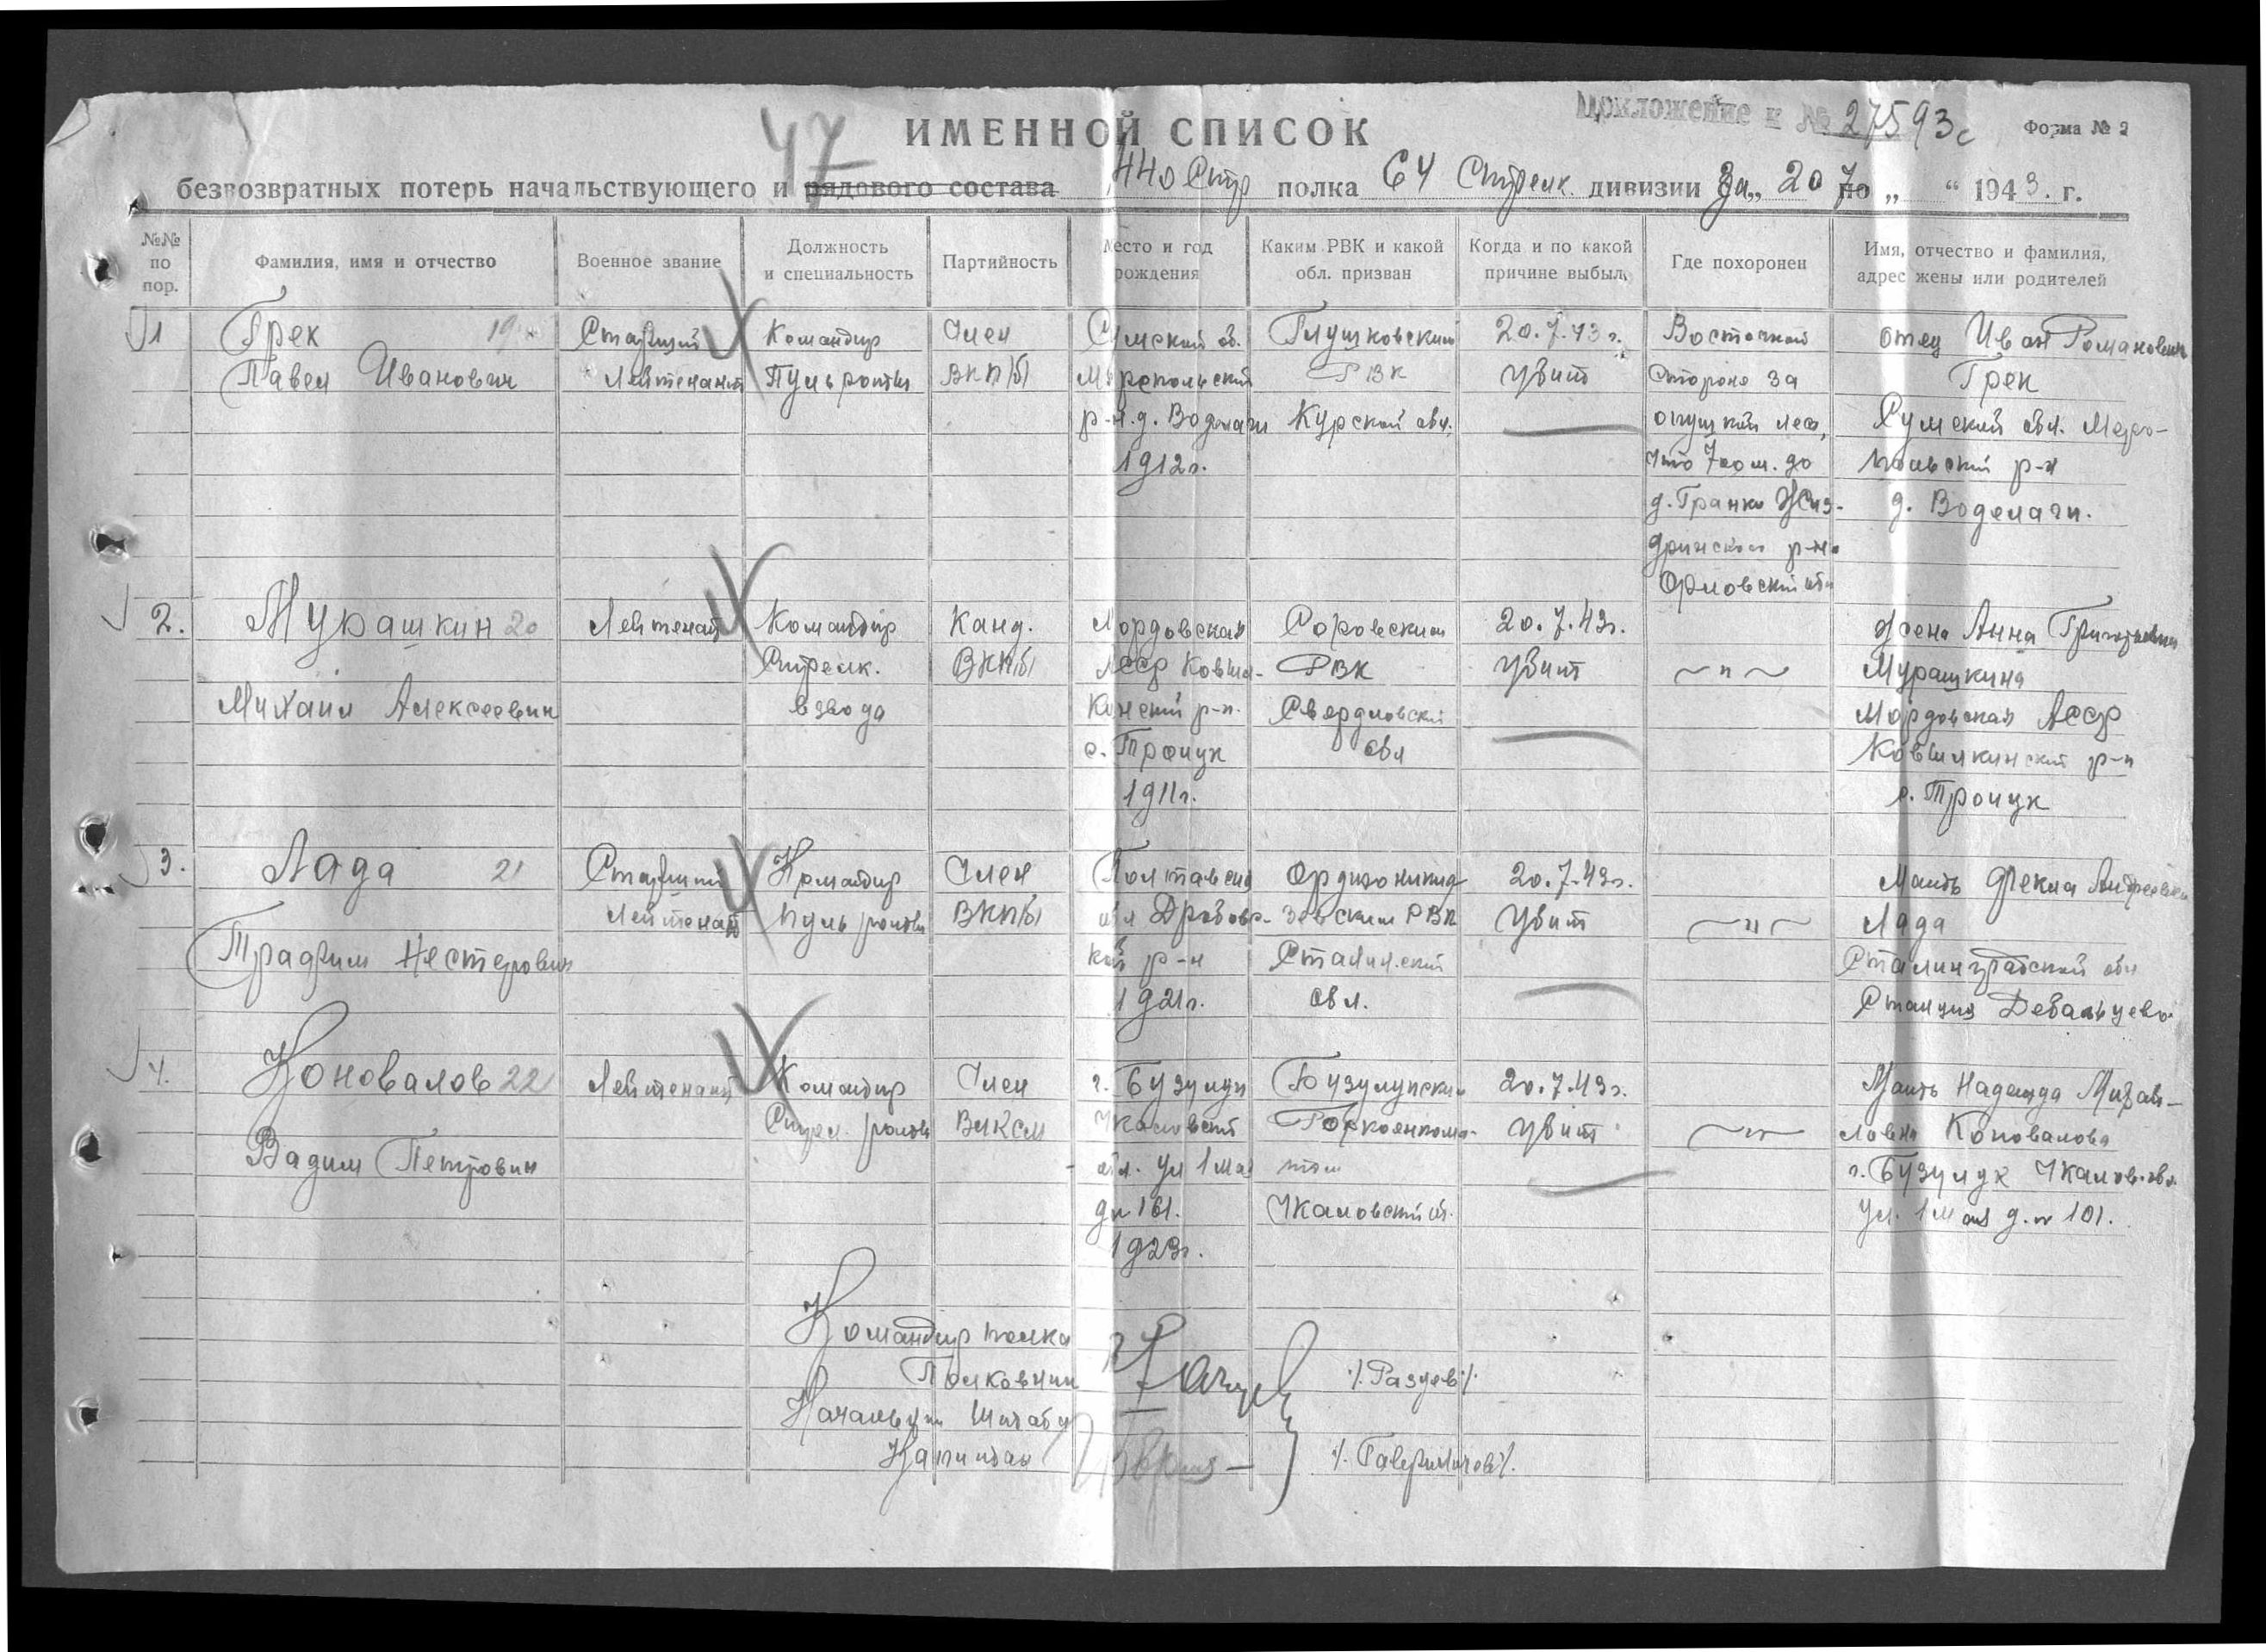 Приложение к № 27593с
Форма № 2
47
ИМЕННОЙ СПИСОК
безвозвратных потерь начальствующего и рядового состава 440 Стр полка 64 Стрелк. дивизии За „ 20 7 по „ “ 1943. г.
№№ по пор.
Фамилия, имя и отчество
Военное звание
Должность и специальность
Партийность
Место и год рождения
Каким РВК и какой обл. призван
Когда и по какой причине выбыл
Где похоронен
Имя, отчество и фамилия, адрес жены или родителей
1
Грек 19
Павел Иванович
Старший
Лейтенант
Командир
Пульроты
Член
ВКП/б/
Сумской об.
Миропольский
р-н. д. Водолаги
1912г.
Глушковский
РВК
Курской обл.
20.7.43г.
убит
Восточной
стороне за
опушкой леса,
что 700 м. до
д. Гранки Жиз-
дринского р-на
Орловской обл
отец Иван Романович
Грек
Сумской обл. Миро-
польский р-н
д. Водолаги.
2.
Мурашкин 20
Михаил Алексеевич
Лейтенант
Командир
Стрелк.
взвода
Канд.
ВКП/б/
Мордовская
АССР Ковыл-
кинский р-н.
с. Троицк
1911г.
РВК
Свердловской
обл
20.7.43г.
убит
~ " ~
Жена Анна Григорьевна
Мурашкина
Мордовская АССР
Ковылкинский р-н
с. Троицк
3.
Лада 21
Трафим Нестерович
Старший
Лейтенант
Командир
Пульроты
Член
ВКП/б/
Полтавская
обл
кий р-н
1921г.
Орджоникид-
зевским РВК
Сталинской
обл.
20.7.43г.
убит
~ " ~
Мать Фекла Андреевна
Лада
Сталинградской обл
Станция Дебальцево
4.
Коновалов 22
Вадим Петрович
Лейтенант
Командир
Стрел. роты
Член
ВЛКСМ
г. Бузулук
Чкаловской
обл. ул 1 Мая
1923г.
Бузулукским
Горвоенкома-
том
Чкаловский об.
20.7.43г.
убит
~ " ~
Мать Надежда Михай-
ловна Коновалова
г. Бузулук Чкалов. обл.
ул. 1 Мая д. № 101.
Командир полка
Полковник
Начальник Штаба
Капитан